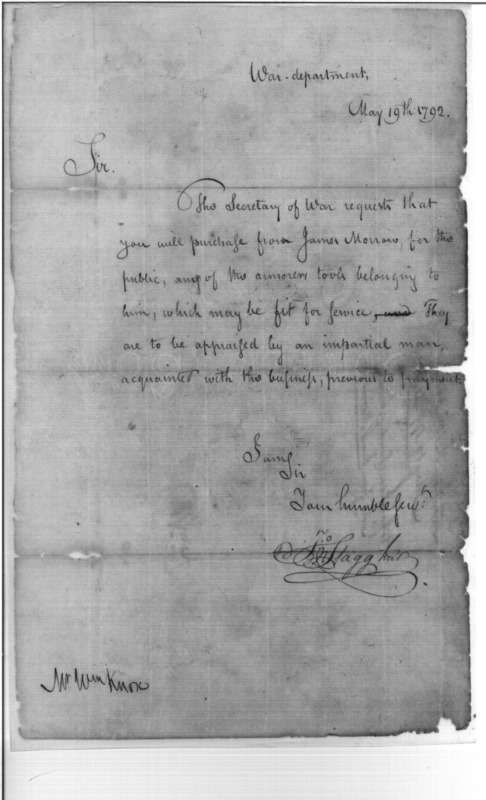 War-department,
May 19th 1792.
Sir.
The Secretary of War requests that
you will purchase from James Morrow, for the
public, any of the armorers tools belonging to
him, which may be fit for service, and They
are to be appraised by an impartial man,
acquainted with the business, previous to payment.
I am
Sir
Your humble Servt.
Jno Stagg Junr.
Mr Wm Knox